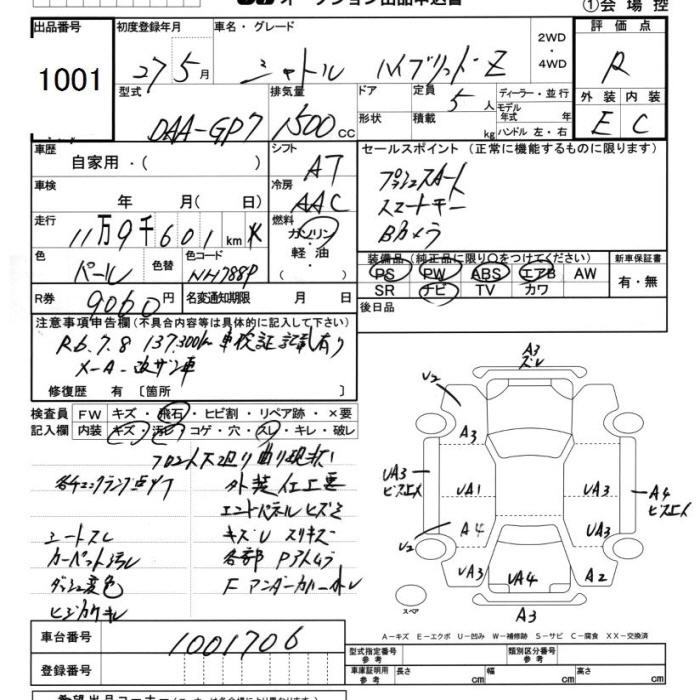 オークション出品申込書
①会場控
出品番号 初度登録年月 車名・グレード 2WD ・4WD 評価点
1001 27 5月 シャトル ハイブリッドZ R
型式 排気量 ドア 定員 5人 ディーラー・並行 外装 内装
DAA-GP7 1500cc 形状 積載 kg モデル年式 年 ハンドル 左・右 E C
車歴 自家用・( ) シフト AT セールスポイント (正常に機能するものに限ります)
車検 年 月( 日) 冷房 AAC プッシュスタート
スマートキー
走行 11万9千601km 燃料 ガソリン・軽油・ Bカメラ
色 パール 色替 色コード NH788P 装備品(純正品に限り○をつけてください) 新車保証書
PS PW ABS エアB AW 有・無
SR ナビ TV カワ
R券 9060円 名変通知期限 月 日 後日品
注意事項申告欄(不具合内容等は具体的に記入して下さい)
R6.7.8 137,300km 車検証記載有り
メーター改ザン車
修復歴 有 [箇所 ]
検査員記入欄 FW キズ・飛石・ヒビ割・リペア跡・×要
内装 キズ・汚れ・コゲ・穴・スレ・キレ・破レ
各チェックランプ点灯 外装仕上悪
シートスレ キズU スリキズ
カーペット汚レ
ダッシュ変色 Fアンダーカバー
A3
ズレ
U2
A3
UA3 UA1 UA3 A4
ビスエス ビスエス
A4 UA3
U2
UA3 UA4 A2
スペア A3
A-キズ E-エクボ U-凹み W-補修跡 S-サビ C-腐食 XX-交換済
車台番号 1001706 型式指定番号 参考 類別区分番号 参考
登録番号 車庫証明用 参考 長さ cm 幅 cm 高さ cm